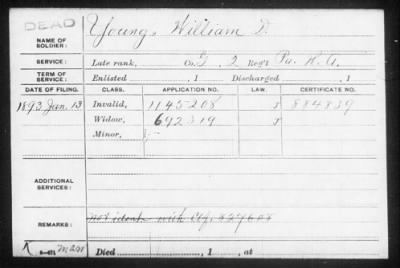 DEAD
NAME OF SOLDIER: Young, William D.
SERVICE: Late rank, Co. G, 2 Reg't Pa. H. A.
TERM OF SERVICE: Enlisted , 1 Discharged , 1
DATE OF FILING. CLASS. APPLICATION NO. LAW. CERTIFICATE NO.
1893 Jan. 13 Invalid, 1145208 S 884839
Widow, 692319 S
Minor,
ADDITIONAL SERVICES:
REMARKS: not ident. with Ctf.
Died , 1 , at